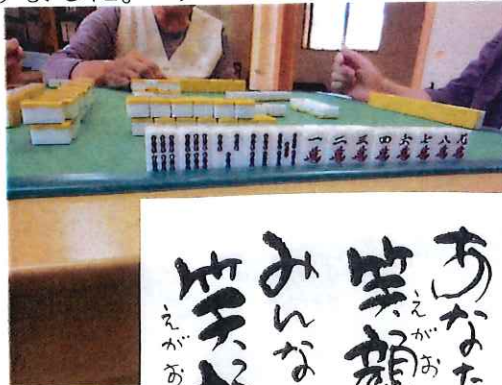 一萬 二萬 三萬 四萬 六萬 七萬 八萬 九萬
あなた
笑顔
えがお
みんな
笑
えがお